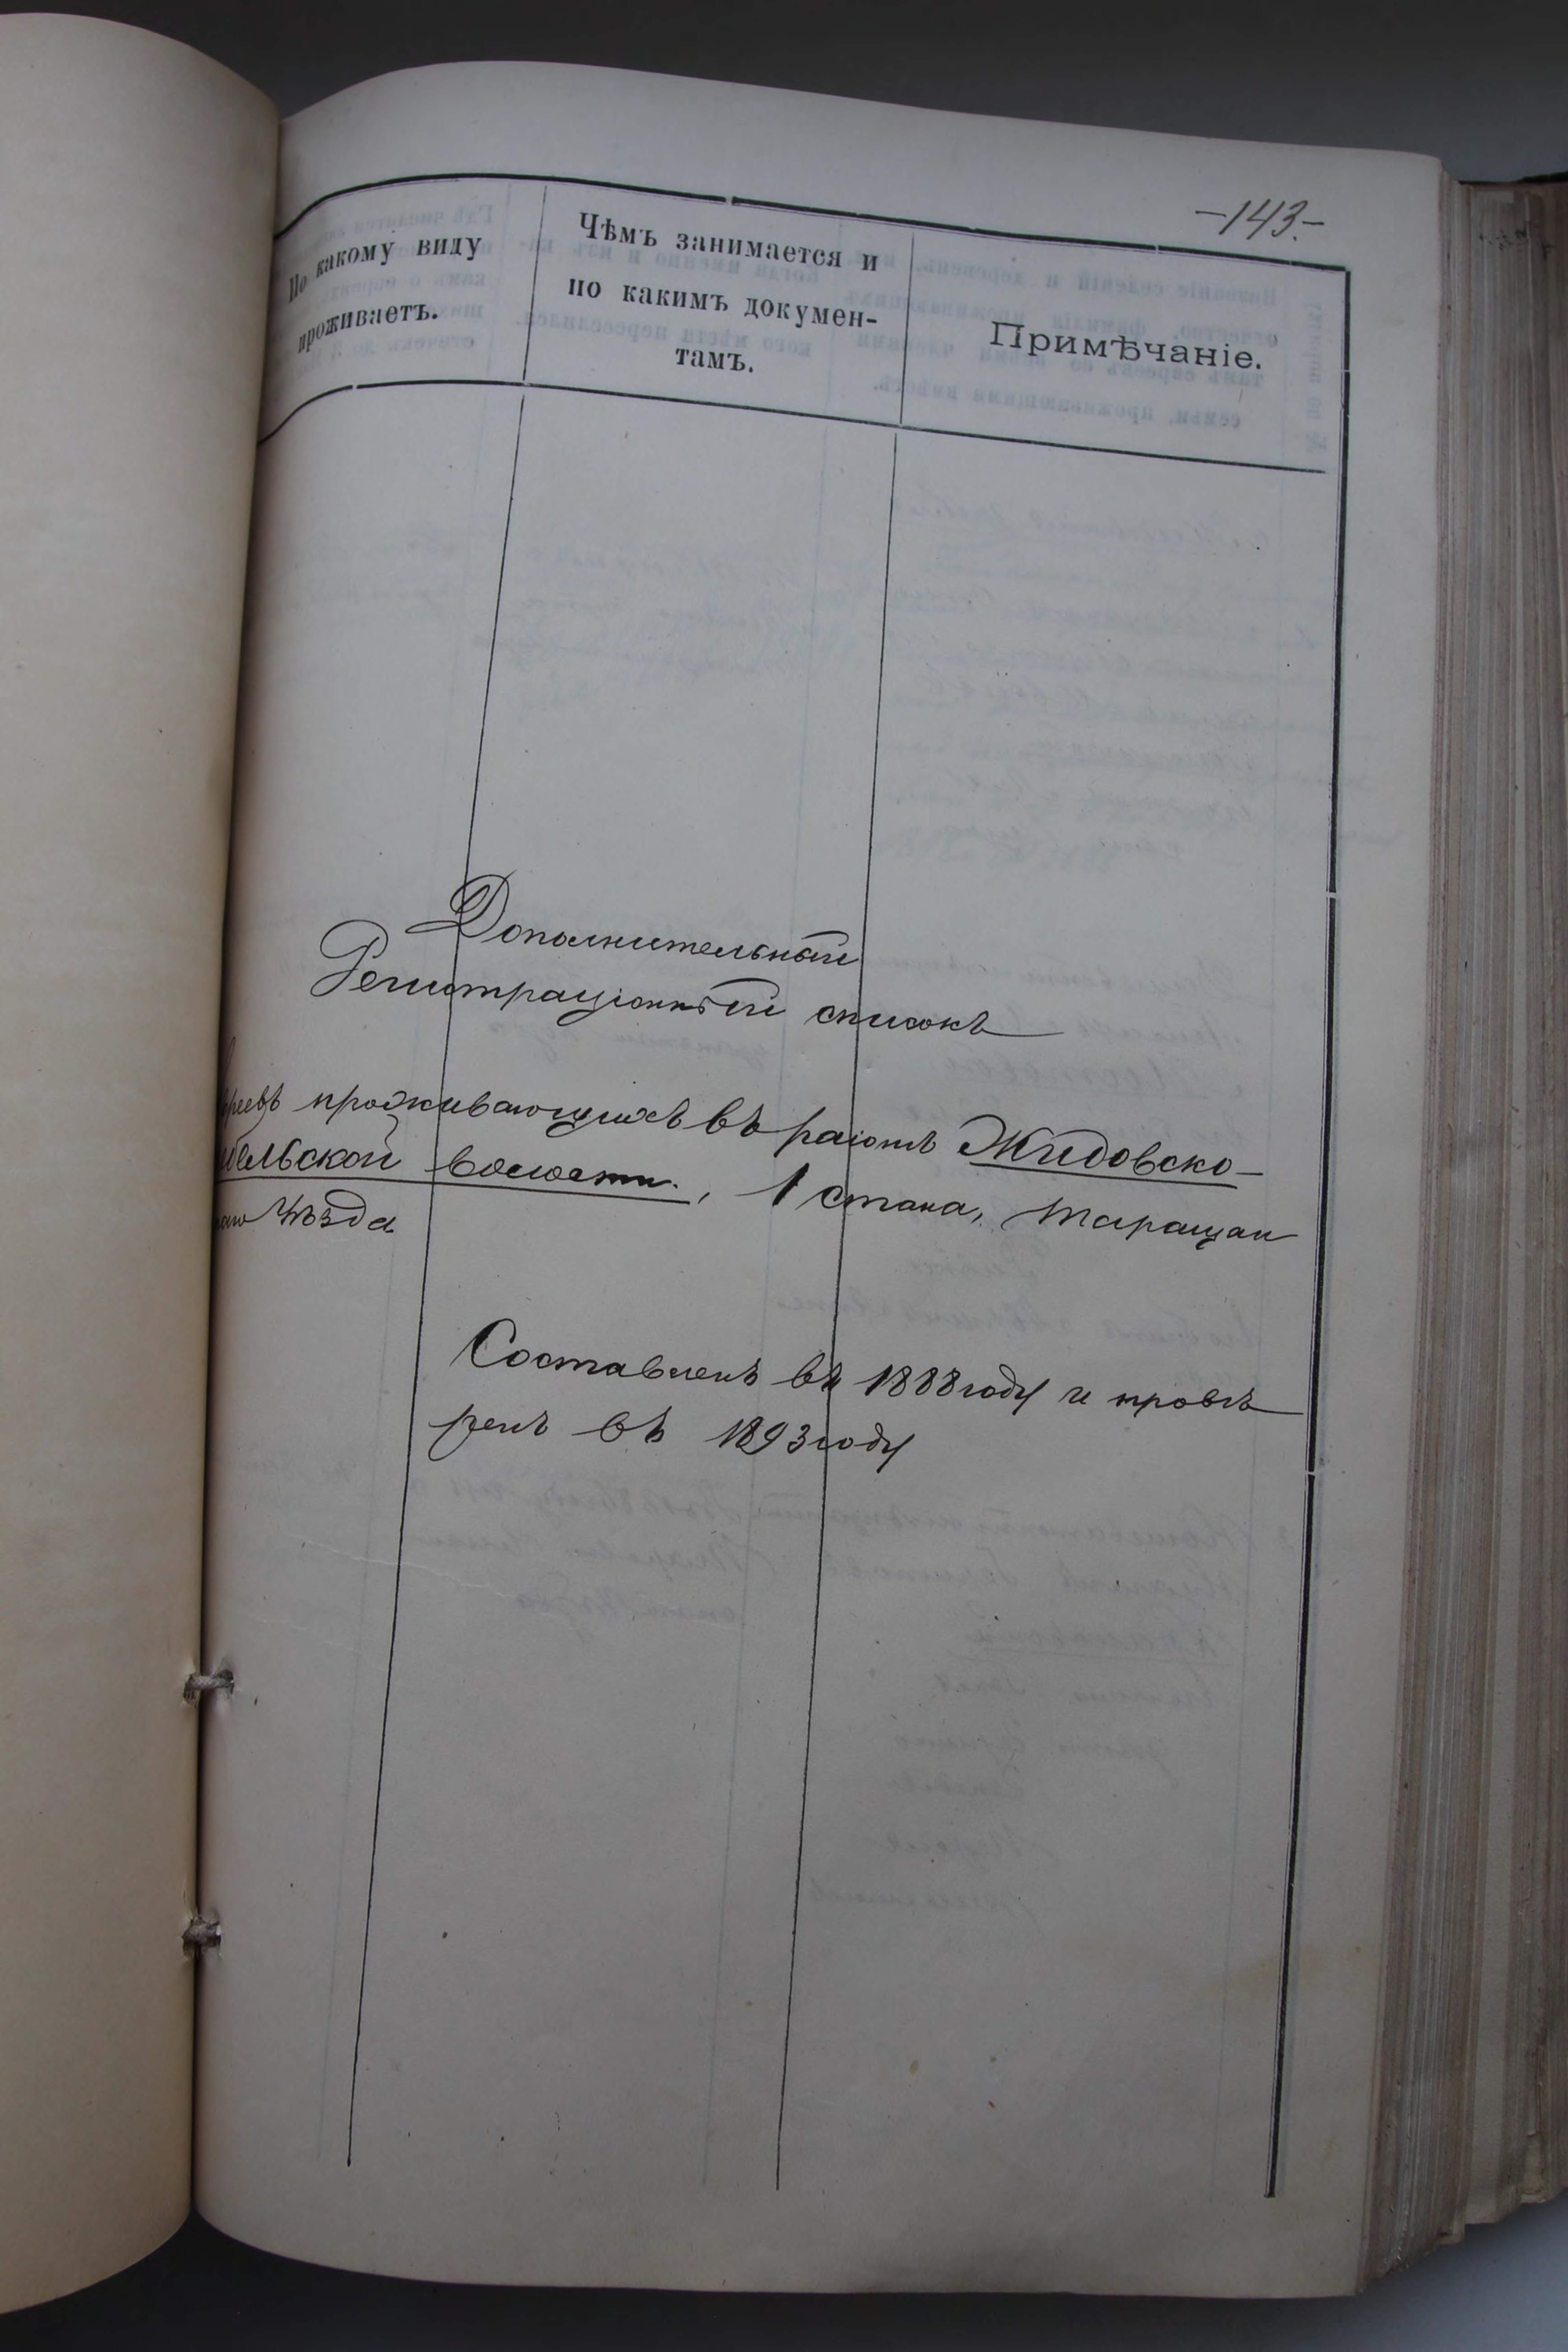 -143.-
По какому виду
проживаетъ.
Чѣмъ занимается и
по какимъ докумен-
тамъ.
Примѣчаніе.
Дополнительный
Регистраціонный списокъ
евреевъ проживающихъ въ раіонѣ Жидовско-
гребельской волости., 1 стана, Таращан
скаго Уѣзда
Составленъ въ 1888 году и провѣ
ренъ въ 1893 году